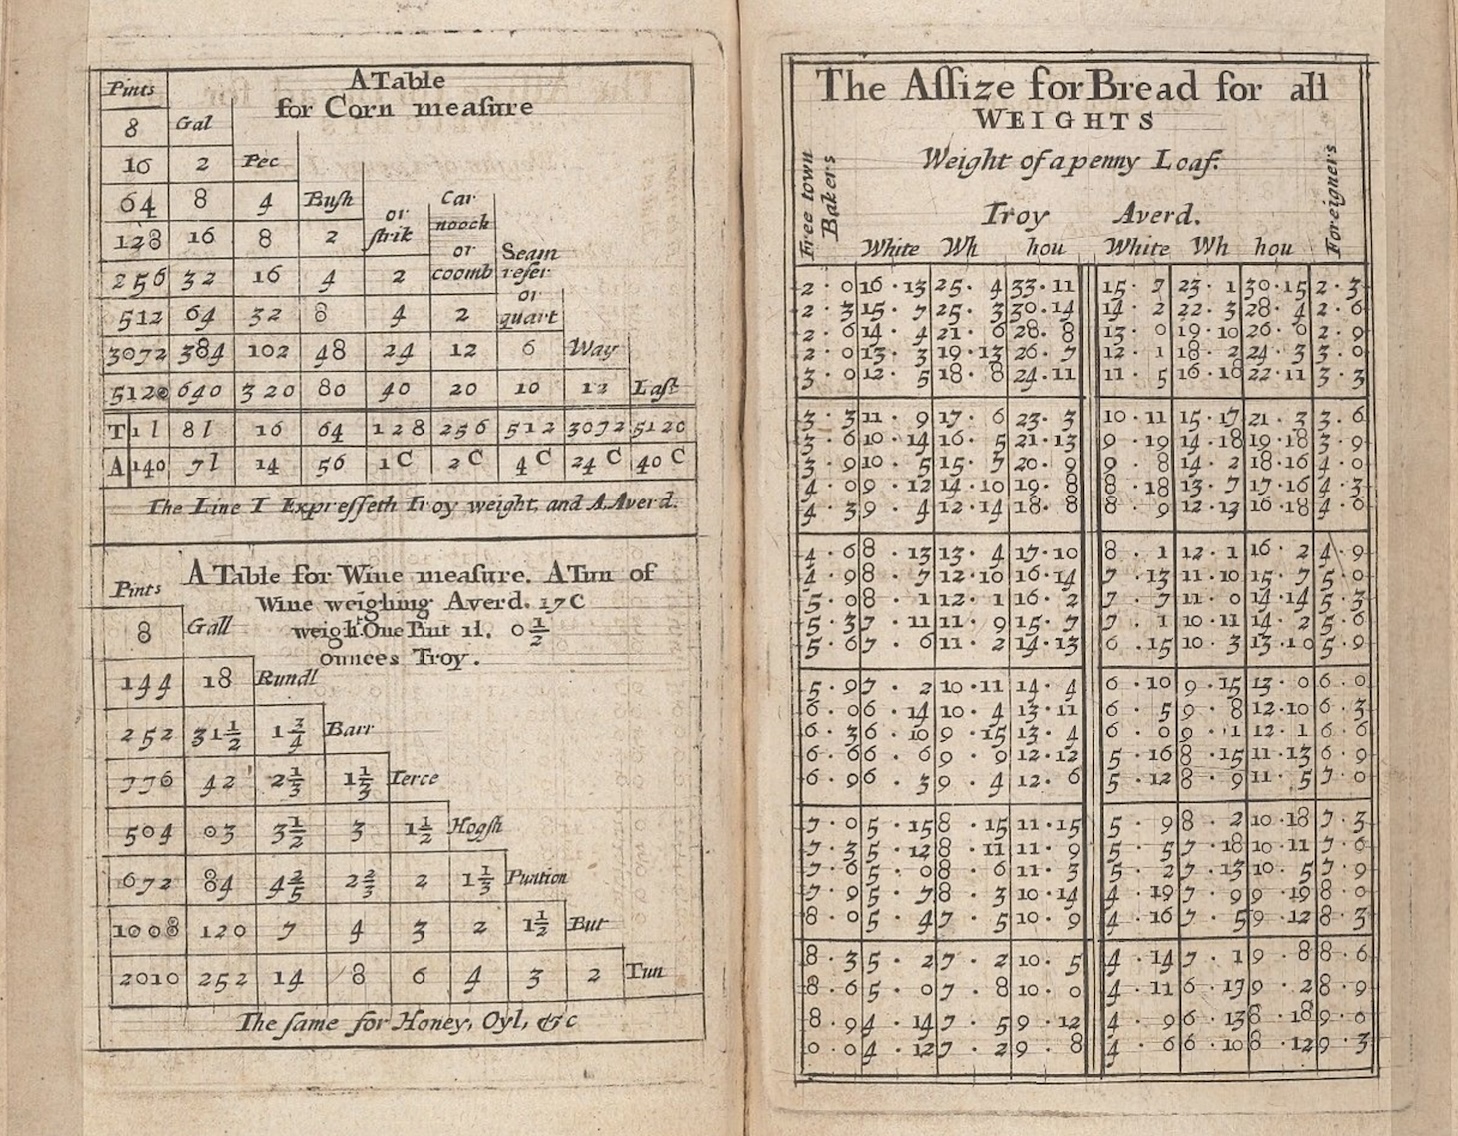 A Table
for Corn measure
Pints
8 Gal
16 2 Pec
64 8 4 Bush
128 16 8 2 or strik
256 32 16 4 2 Car nooch or coomb
512 64 32 8 4 2 Seam refer or quart
3072 384 102 48 24 12 6 Way
5120 640 320 80 40 20 10 12 Last
T 1l 8l 16 64 128 256 512 3072 5120
A 140 7l 14 56 1C 2C 4C 24C 40C
The Line T Expresseth Troy weight, and A Averd.
A Table for Wine measure. A Tun of
Wine weighing Averd. 17C
weight One But 1l. 0 1/2
ounces Troy.
Pints
8 Gall
144 18 Rundl
252 31 1/2 1 3/4 Barr
776 42 2 1/3 1 1/3 Terce
504 03 3 1/2 3 1 1/2 Hogsh
672 84 4 2/5 2 2/3 2 1 1/3 Puntion
1008 120 7 4 3 2 1 1/2 But
2010 252 14 8 6 4 3 2 Tun
The same for Honey, Oyl, &c
The Assize for Bread for all
WEIGHTS
Weight of a penny Loaf.
Free town Bakers
Troy Averd.
Foreigners
White Wh hou White Wh hou
2·0 16·13 25·4 33·11 15·7 23·1 30·15 2·3
2·3 15·7 25·3 30·14 14·2 22·3 28·4 2·6
2·6 14·4 21·6 28·8 13·0 19·10 26·0 2·9
2·0 13·3 19·13 26·7 12·1 18·2 24·3 3·0
3·0 12·5 18·8 24·11 11·5 16·18 22·11 3·3
3·3 11·9 17·6 23·3 10·11 15·17 21·3 3·6
3·6 10·14 16·5 21·13 9·19 14·18 19·18 3·9
3·9 10·5 15·7 20·9 9·8 14·2 18·16 4·0
4·0 9·12 14·10 19·8 8·18 13·7 17·16 4·3
4·3 9·4 12·14 18·8 8·9 12·13 16·18 4·0
4·6 8·13 13·4 17·10 8·1 12·1 16·2 4·9
4·9 8·7 12·10 16·14 7·13 11·10 15·7 5·0
5·0 8·1 12·1 16·2 7·7 11·0 14·14 5·3
5·3 7·11 11·9 15·7 7·1 10·11 14·2 5·6
5·6 7·6 11·2 14·13 6·15 10·3 13·10 5·9
5·9 7·2 10·11 14·4 6·10 9·15 13·0 6·0
6·0 6·14 10·4 13·11 6·5 9·8 12·10 6·3
6·3 6·10 9·15 13·4 6·0 9·1 12·1 6·6
6·6 6·6 9·9 12·12 5·16 8·15 11·13 6·9
6·9 6·3 9·4 12·6 5·12 8·9 11·5 7·0
7·0 5·15 8·15 11·15 5·9 8·2 10·18 7·3
7·3 5·12 8·11 11·9 5·5 7·18 10·11 7·6
7·6 5·0 8·6 11·3 5·2 7·13 10·5 7·9
7·9 5·7 8·3 10·14 4·19 7·9 9·19 8·0
8·0 5·4 7·5 10·9 4·16 7·5 9·12 8·3
8·3 5·2 7·2 10·5 4·14 7·1 9·8 8·6
8·6 5·0 7·8 10·0 4·11 6·17 9·2 8·9
8·9 4·14 7·5 9·12 4·9 6·13 8·18 9·0
0·0 4·12 7·2 9·8 4·6 6·10 8·12 9·3